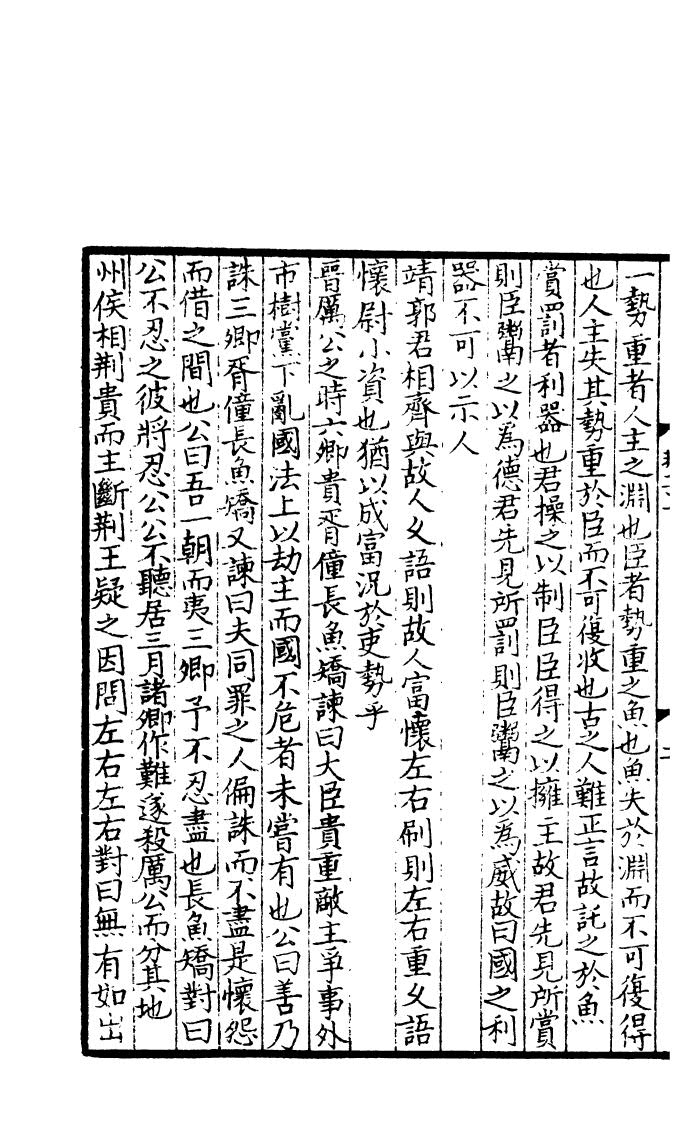 一勢重者人主之淵也臣者勢重之魚也魚失於淵而不可復得
也人主失其勢重於臣而不可復收也古之人難正言故託之於魚
賞罰者利器也君操之以制臣臣得之以擁主故君先見所賞
則臣鬻之以為德君先見所罰則臣鬻之以為威故曰國之利
器不可以示人
靖郭君相齊與故人乆語則故人富懷左右刷則左右重乆語
懷尉小資也猶以成富况於吏勢乎
晉厲公之時六卿貴胥僮長魚矯諫曰大臣貴重敵主爭事外
市樹黨下亂國法上以劫主而國不危者未嘗有也公曰善乃
誅三卿胥僮長魚矯又諫曰夫同罪之人偏誅而不盡是懷怨
而借之間也公曰吾一朝而夷三卿予不忍盡也長魚矯對曰
公不忍之彼將忍公公不聽居三月諸卿作難遂殺厲公而分其地
州侯相荆貴而主斷荆王疑之因問左右左右對曰無有如出